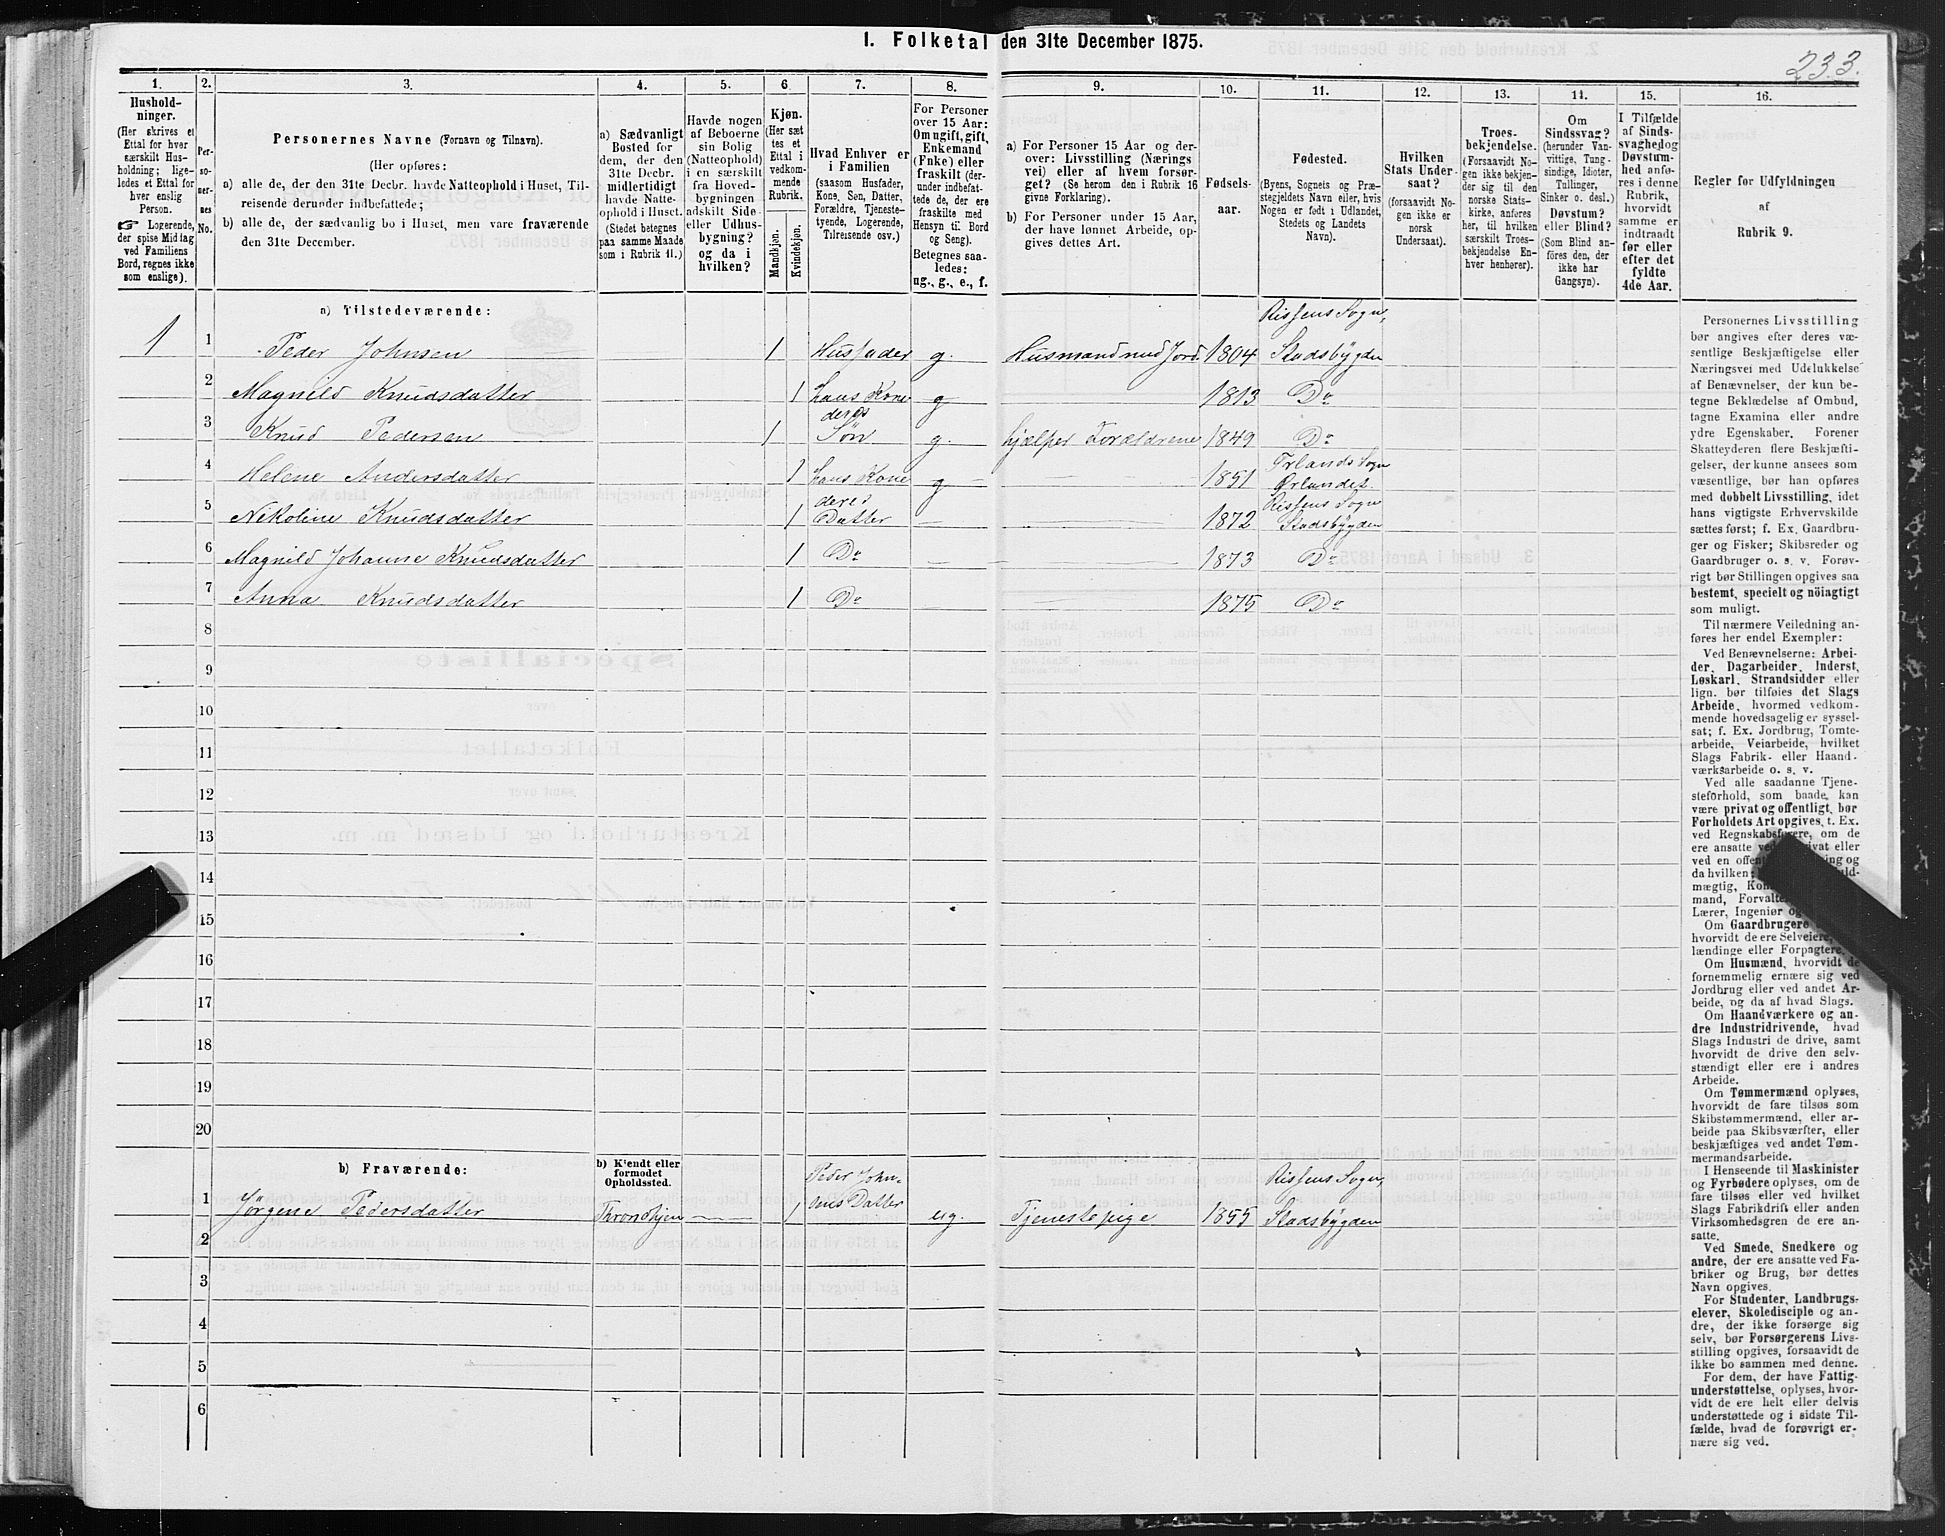 1. Folketal den 31te December 1875.
233.
1.
Hushold-
ninger.
(Her skrives et
Ettal for hver
særskilt Hus-
holdning; lige-
ledes et Ettal for
hver enslig
Person.
☞ Logerende,
der spise Middag
ved Familiens
Bord, regnes ikke
som enslige).
2.
Per-
so-
ner-
nes
No.
3.
Personernes Navne (Fornavn og Tilnavn).
(Her opføres:
a) alle de, der den 31te Decbr. havde Natteophold i Huset, Til-
reisende derunder indbefattede;
b) alle de, der sædvanlig bo i Huset, men vare fraværende
den 31te December.
4.
a) Sædvanligt
Bosted for
dem, der den
31te Decbr.
midlertidigt
havde Natte-
ophold i Huset.
(Stedet betegnes
paa samme Maade
som i Rubrik 11.)
5.
Havde nogen
af Beboerne
sin Bolig
(Natteophold)
i en særskilt
fra Hoved-
bygningen
adskilt Side-
eller Udhus-
bygning?
og da i
hvilken?
6
Kjøn.
(Her sæt
tes et
Ettal i
vedkom-
mende
Rubrik.
Mandkjøn.
Kvindekjøn.
7.
Hvad Enhver er
i Familien
(saasom Husfader,
Kone, Søn, Datter,
Forældre, Tjeneste-
tyende, Logerende,
Tilreisende osv.)
8.
For Personer
over 15 Aar:
Om ugift, gift,
Enkemand
(Enke) eller
fraskilt (der-
under indbefat-
tede de, der ere
fraskilte med
Hensyn til Bord
og Seng).
Betegnes saa-
ledes:
ug., g., e., f.
9.
a) For Personer 15 Aar og der-
over: Livsstilling (Nærings
vei) eller af hvem forsør-
get? (Se herom den i Rubrik 16
givne Forklaring).
b) For Personer under 15 Aar,
der have lønnet Arbeide, op-
gives dettes Art.
10.
Fødsels-
aar.
11.
Fødested.
(Byens, Sognets og Præ-
stegjeldets Navn eller, hvis
Nogen er født i Udlandet,
Stedets og Landets
Navn).
12.
Hvilken
Stats Under-
saat?
(forsaavidt No-
gen ikke er
norsk
Undersaat).
13.
Troes-
bekjendelse.
(Forsaavidt No-
gen ikke bekjen-
der sig til den
norske Stats-
kirke, anføres
her, til hvilken
særskilt Troes-
bekjendelse En-
hver henhører).
14.
Om
Sindssvag?
(herunder Van-
vittige, Tung-
sindige, Idioter,
Tullinger,
Sinker o. desl.)
Døvstum?
eller Blind?
(Som Blind an-
føres den, der
ikke har
Gangsyn).
15.
I Tilfælde
af Sinds-
svaghed og
Døvstum-
hed anfø-
res i denne
Rubrik,
hvorvidt
samme er
indtraadt
før eller
efter det
fyldte
4de Aar.
16.
Regler for Udfyldningen
af
Rubrik 9.
a) Tilstedeværende:
Rissens Sogn,
1 1 Peder Johnsen 1 Husfader g. Husmand med Jord. 1804 Stadsbygden
2 Magnild Knudsdatter 1 hans Kone g 1813 Do
deres
3 Knud Pedersen 1 Søn g. hjælper Forældrene 1849 Do
Ørlands Sogn
4 Helene Andersdatter 1 hans Kone g 1851 Ørlandet.
deres Rissens Sogn
5 Nikoline Knudsdatter 1 Datter 1872 Stadsbygden
6 Magnild Johanne Knudsdatter 1 Do 1873 Do
7 Anna Knudsdatter 1 Do 1875 Do
8
9
10
11
12
13
14
15
16
17
18
19
20
b) Fraværende:
b) Kjendt eller
formodet
Opholdssted.
Peder John- Rissens Sogn,
1 Jörgene Pedersdatter Throndhjem 1 sens Datter ug. Tjenestepige 1855 Stadsbygden
2
3
4
5
6
Personernes Livsstilling
bør angives efter deres væ-
sentlige Beskjæftigelse eller
Næringsvei med Udelukkelse
af Benævnelser, der kun be-
tegne Beklædelse af Ombud,
tagne Examina eller andre
ydre Egenskaber. Forener
Skatteyderen flere Beskjæfti-
gelser, der kunne ansees som
væsentlige, bør han opføres
med dobbelt Livsstilling, idet
hans vigtigste Erhvervskilde
sættes først; f. Ex. Gaardbru-
ger og Fisker; Skibsreder og
Gaardbruger o. s. v. Forøv-
rigt bør Stillingen opgives saa
bestemt, specielt og nöiagtigt
som muligt.
Til nærmere Veiledning an-
føres her endel Exempler:
Ved Benævnelserne: Arbei-
der, Dagarbeider, Inderst,
Løskarl, Strandsidder eller
lign. bør tilføies det Slags
Arbeide, hvormed vedkom-
mende hovedsagelig er syssel-
sat; f. Ex. Jordbrug, Tomte-
arbeide, Veiarbeide, hvilket
Slags Fabrik- eller Haand-
værksarbeide o. s. v.
Ved alle saadanne Tjene-
steforhold, som baade, kan
være privat og offentligt, bør
Forholdets Art opgives, t. Ex.
ved Regnskabsførere, om de
ere ansatte
ved en
da hvilken;
mægtig,
mand,
Lærer, Ingeniør
Om Gaardbrugere
hvorvidt de ere Selveiere,
lændinge eller Forpagtere.
Om Husmænd, hvorvidt de
fornemmelig ernære sig ved
Jordbrug eller ved andet Ar-
beide, og da af hvad Slags.
Om Haandværkere og an-
dre Industridrivende, hvad
Slags Industri de drive, samt
hvorvidt de drive den selv-
stændigt eller ere i andres
Arbeide.
Om Tømmermænd oplyses,
hvorvidt de fare tilsøs som
Skibstømmermænd, eller ar-
beide paa Skibsværfter, eller
beskjæftiges ved andet Tøm-
mermandsarbeide.
I Henseende til Maskinister
og Fyrbødere oplyses, om de
fare tilsøs eller ved hvilket
Slags Fabrikdrift eller anden
Virksomhedsgren de ere an-
satte.
Ved Smede, Snedkere og
andre, der ere ansatte ved Fa-
briker og Brug, bør dettes
Navn opgives.
For Studenter, Landbrugs-
elever, Skoledisciple og an-
dre, der ikke forsørge sig
selv, bør Forsørgerens Livs-
stilling opgives, forsaavidt de
ikke bo sammen med denne.
For dem, der have Fattig-
understøttelse, oplyses, hvor-
vidt de ere helt eller delvis
understøttede og i sidste Til-
fælde, hvad de forøvrigt er-
nære sig ved.